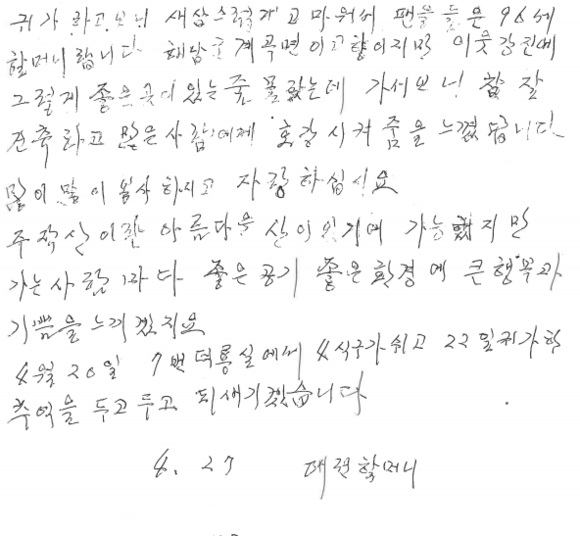 귀가 하고보니 새삼스럽게 고마워서 팬을 들은 96세
할머니 랍니다 해남군 계곡면이 고향이지만 이웃 강진에
그렇게 좋은 곳이 있는줄 몰랐는데 가서보니 참 잘
건축하고 많은 사람에게 호강 시켜 줌을 느꼈답니다
많이 많이 봉사 하시고 자랑 하십시요
주작산이란 아름다운 산이 있기에 가능했지만
가는 사람마다 좋은 공기 좋은 환경에 큰 행복과
기쁨을 느끼겠지요
4월 20일 7번 덕룡실에서 4식구가 쉬고 22일 귀가 하
추억을 두고 두고 되새기겠습니다
4. 27 대전할머니